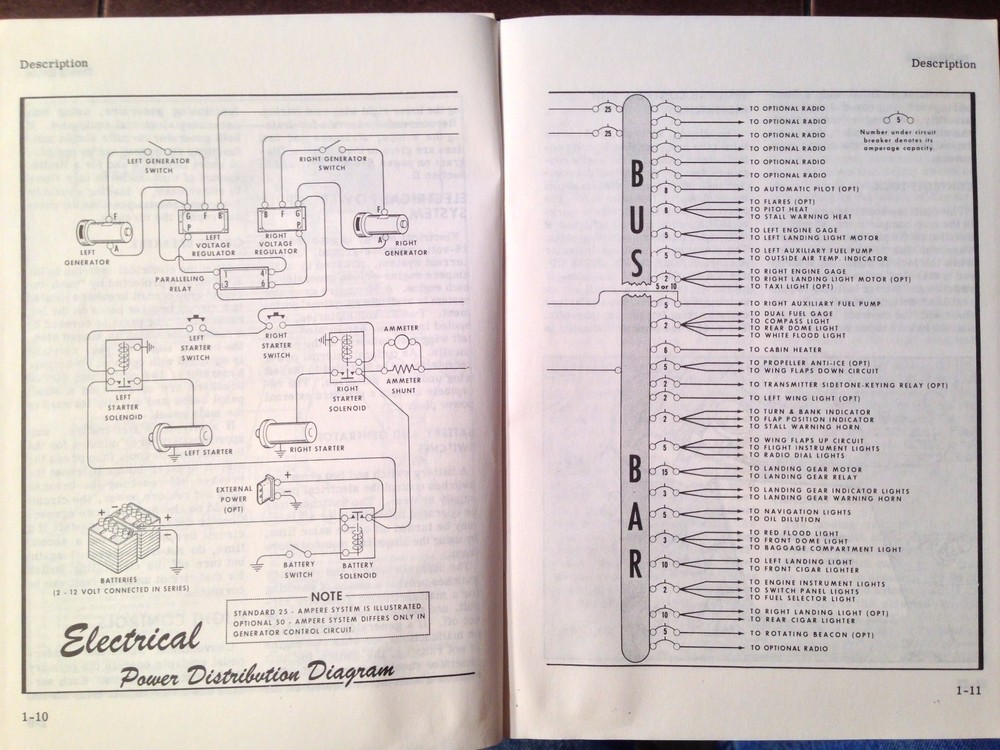 Description
LEFT GENERATOR
SWITCH
RIGHT GENERATOR
SWITCH
F
A
LEFT
GENERATOR
G F B
P
LEFT
VOLTAGE
REGULATOR
B F G
P
RIGHT
VOLTAGE
REGULATOR
F
A
RIGHT
GENERATOR
PARALLELING
RELAY
1 4
3 6
LEFT
STARTER
SWITCH
RIGHT
STARTER
SWITCH
AMMETER
AMMETER
SHUNT
LEFT
STARTER
SOLENOID
RIGHT
STARTER
SOLENOID
LEFT STARTER
RIGHT STARTER
EXTERNAL
POWER
(OPT)
+
-
+ - + -
+
-
BATTERIES
(2 - 12 VOLT CONNECTED IN SERIES)
BATTERY
SWITCH
BATTERY
SOLENOID
NOTE
STANDARD 25 - AMPERE SYSTEM IS ILLUSTRATED.
OPTIONAL 50 - AMPERE SYSTEM DIFFERS ONLY IN
GENERATOR CONTROL CIRCUIT.
Electrical
Power Distribution Diagram
1-10
Description
25
25
BUS
BAR
5
Number under circuit
breaker denotes its
amperage capacity.
TO OPTIONAL RADIO
TO OPTIONAL RADIO
TO OPTIONAL RADIO
TO OPTIONAL RADIO
TO OPTIONAL RADIO
TO OPTIONAL RADIO
8 TO AUTOMATIC PILOT (OPT)
8 TO FLARES (OPT)
TO PITOT HEAT
TO STALL WARNING HEAT
5 TO LEFT ENGINE GAGE
TO LEFT LANDING LIGHT MOTOR
5 TO LEFT AUXILIARY FUEL PUMP
TO OUTSIDE AIR TEMP. INDICATOR
2 TO RIGHT ENGINE GAGE
TO RIGHT LANDING LIGHT MOTOR (OPT)
TO TAXI LIGHT (OPT)
5 or 10
5 TO RIGHT AUXILIARY FUEL PUMP
2 TO DUAL FUEL GAGE
TO COMPASS LIGHT
TO REAR DOME LIGHT
TO WHITE FLOOD LIGHT
6 TO CABIN HEATER
5 TO PROPELLER ANTI-ICE (OPT)
TO WING FLAPS DOWN CIRCUIT
2 TO TRANSMITTER SIDETONE-KEYING RELAY (OPT)
2 TO LEFT WING LIGHT (OPT)
2 TO TURN & BANK INDICATOR
TO FLAP POSITION INDICATOR
TO STALL WARNING HORN
5 TO WING FLAPS UP CIRCUIT
TO FLIGHT INSTRUMENT LIGHTS
TO RADIO DIAL LIGHTS
15 TO LANDING GEAR MOTOR
TO LANDING GEAR RELAY
3 TO LANDING GEAR INDICATOR LIGHTS
TO LANDING GEAR WARNING HORN
5 TO NAVIGATION LIGHTS
TO OIL DILUTION
3 TO RED FLOOD LIGHT
TO FRONT DOME LIGHT
TO BAGGAGE COMPARTMENT LIGHT
10 TO LEFT LANDING LIGHT
TO FRONT CIGAR LIGHTER
2 TO ENGINE INSTRUMENT LIGHTS
TO SWITCH PANEL LIGHTS
TO FUEL SELECTOR LIGHT
10 TO RIGHT LANDING LIGHT (OPT)
TO REAR CIGAR LIGHTER
5 TO ROTATING BEACON (OPT)
TO OPTIONAL RADIO
1-11